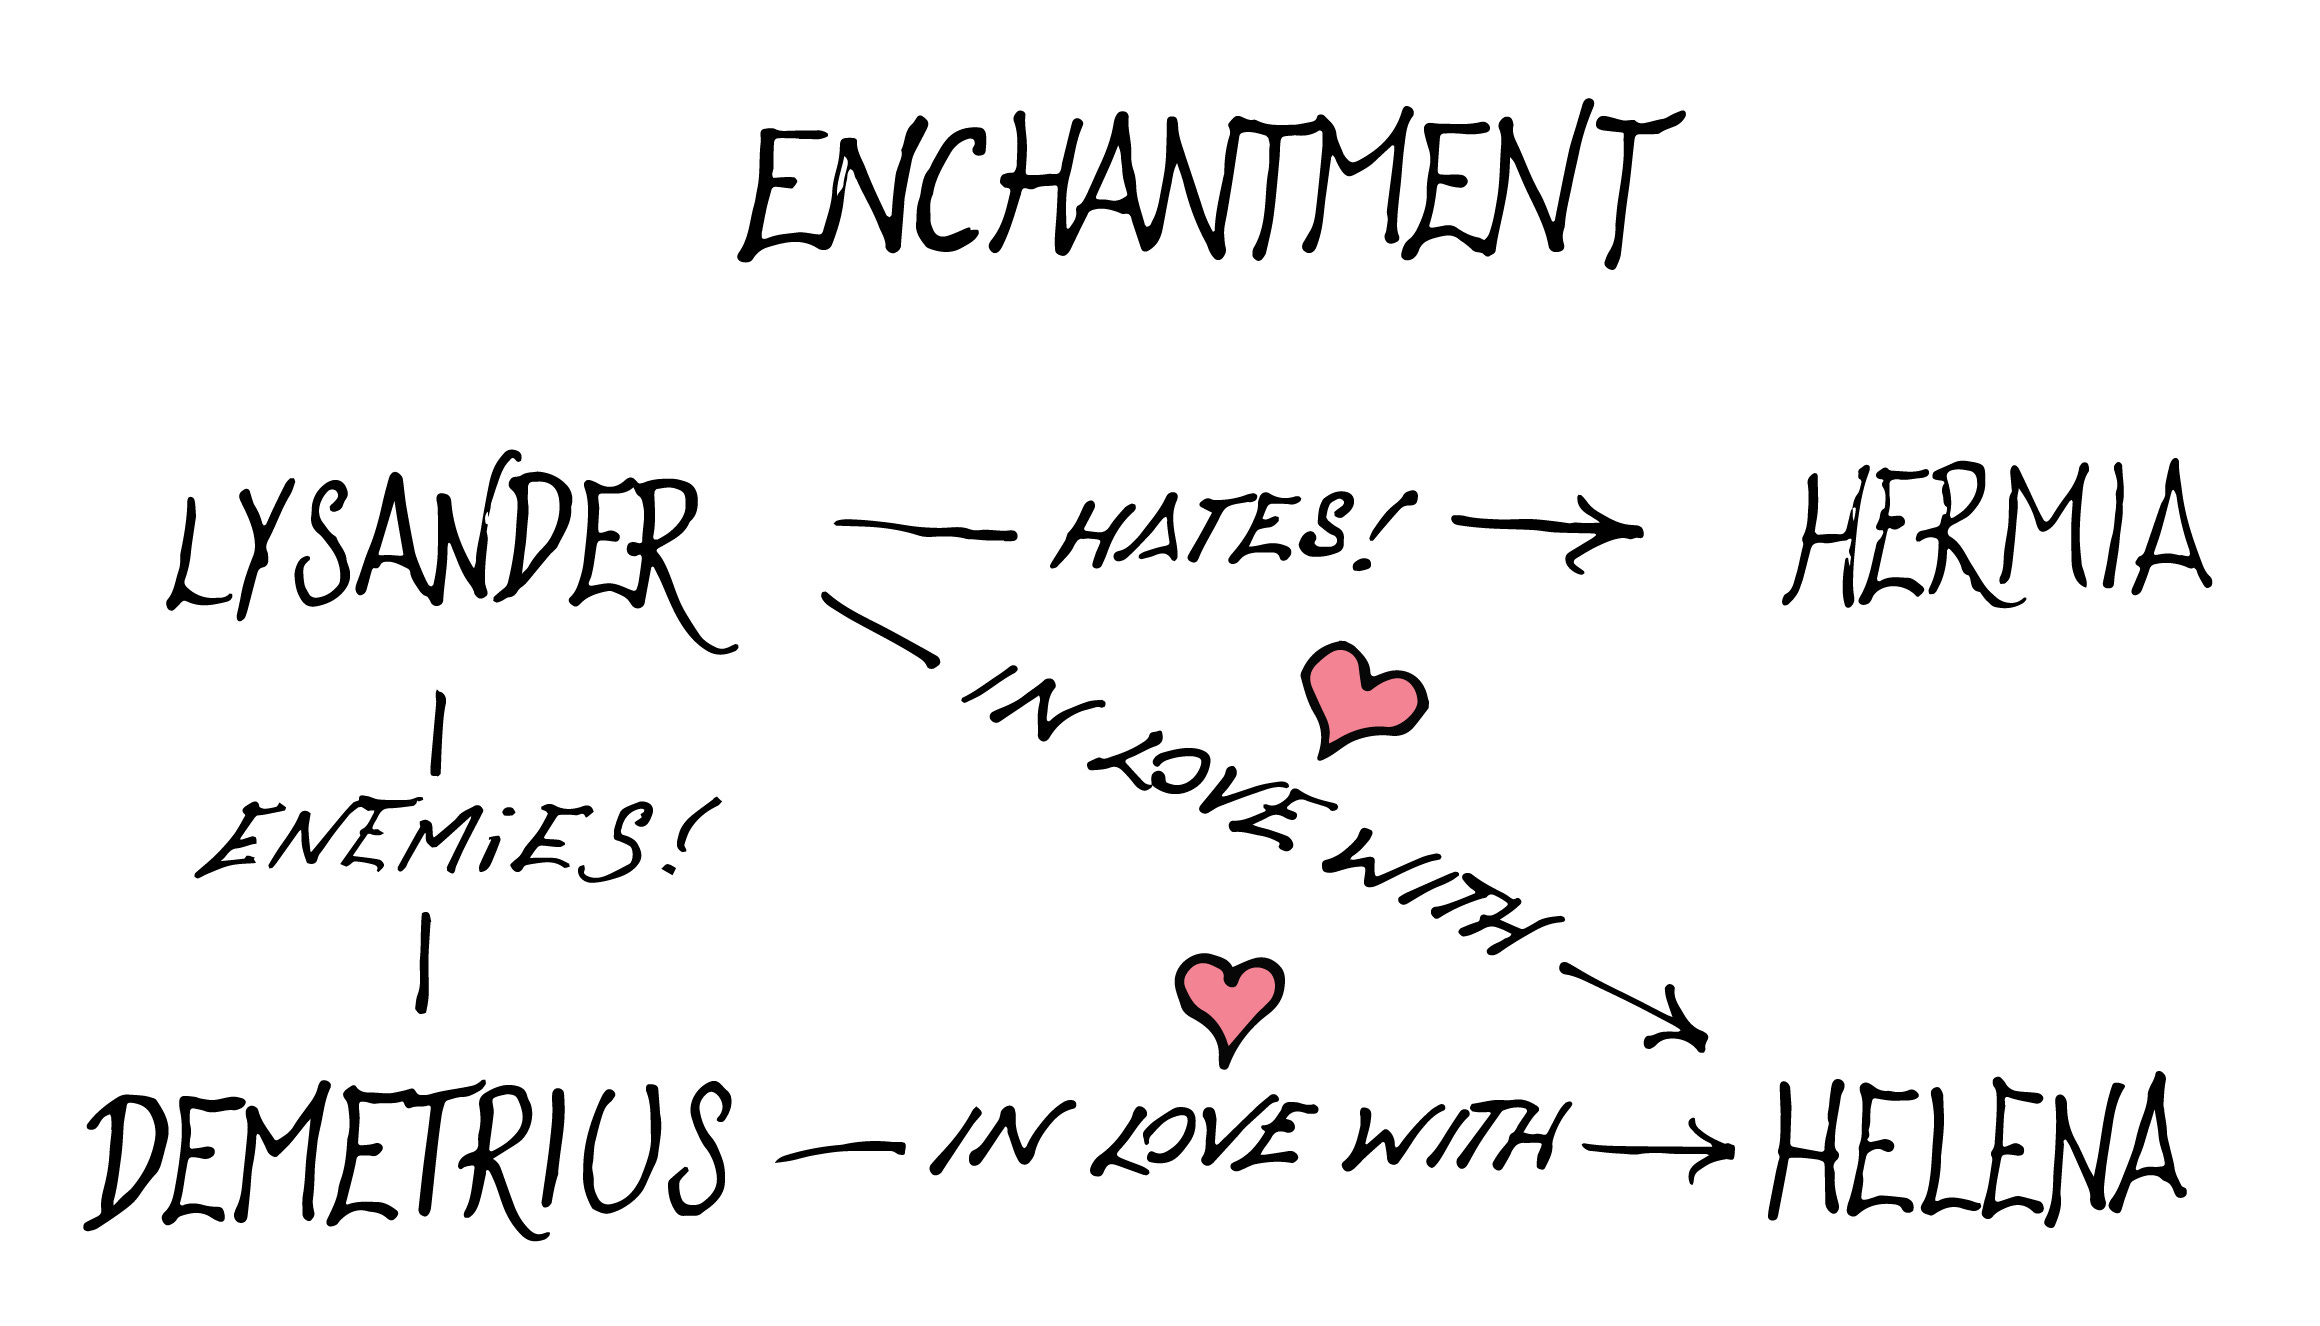 ENCHANTMENT
LYSANDER HATES! HERMIA
IN LOVE WITH
ENEMiES!
DEMETRIUS IN LOVE WITH HELENA